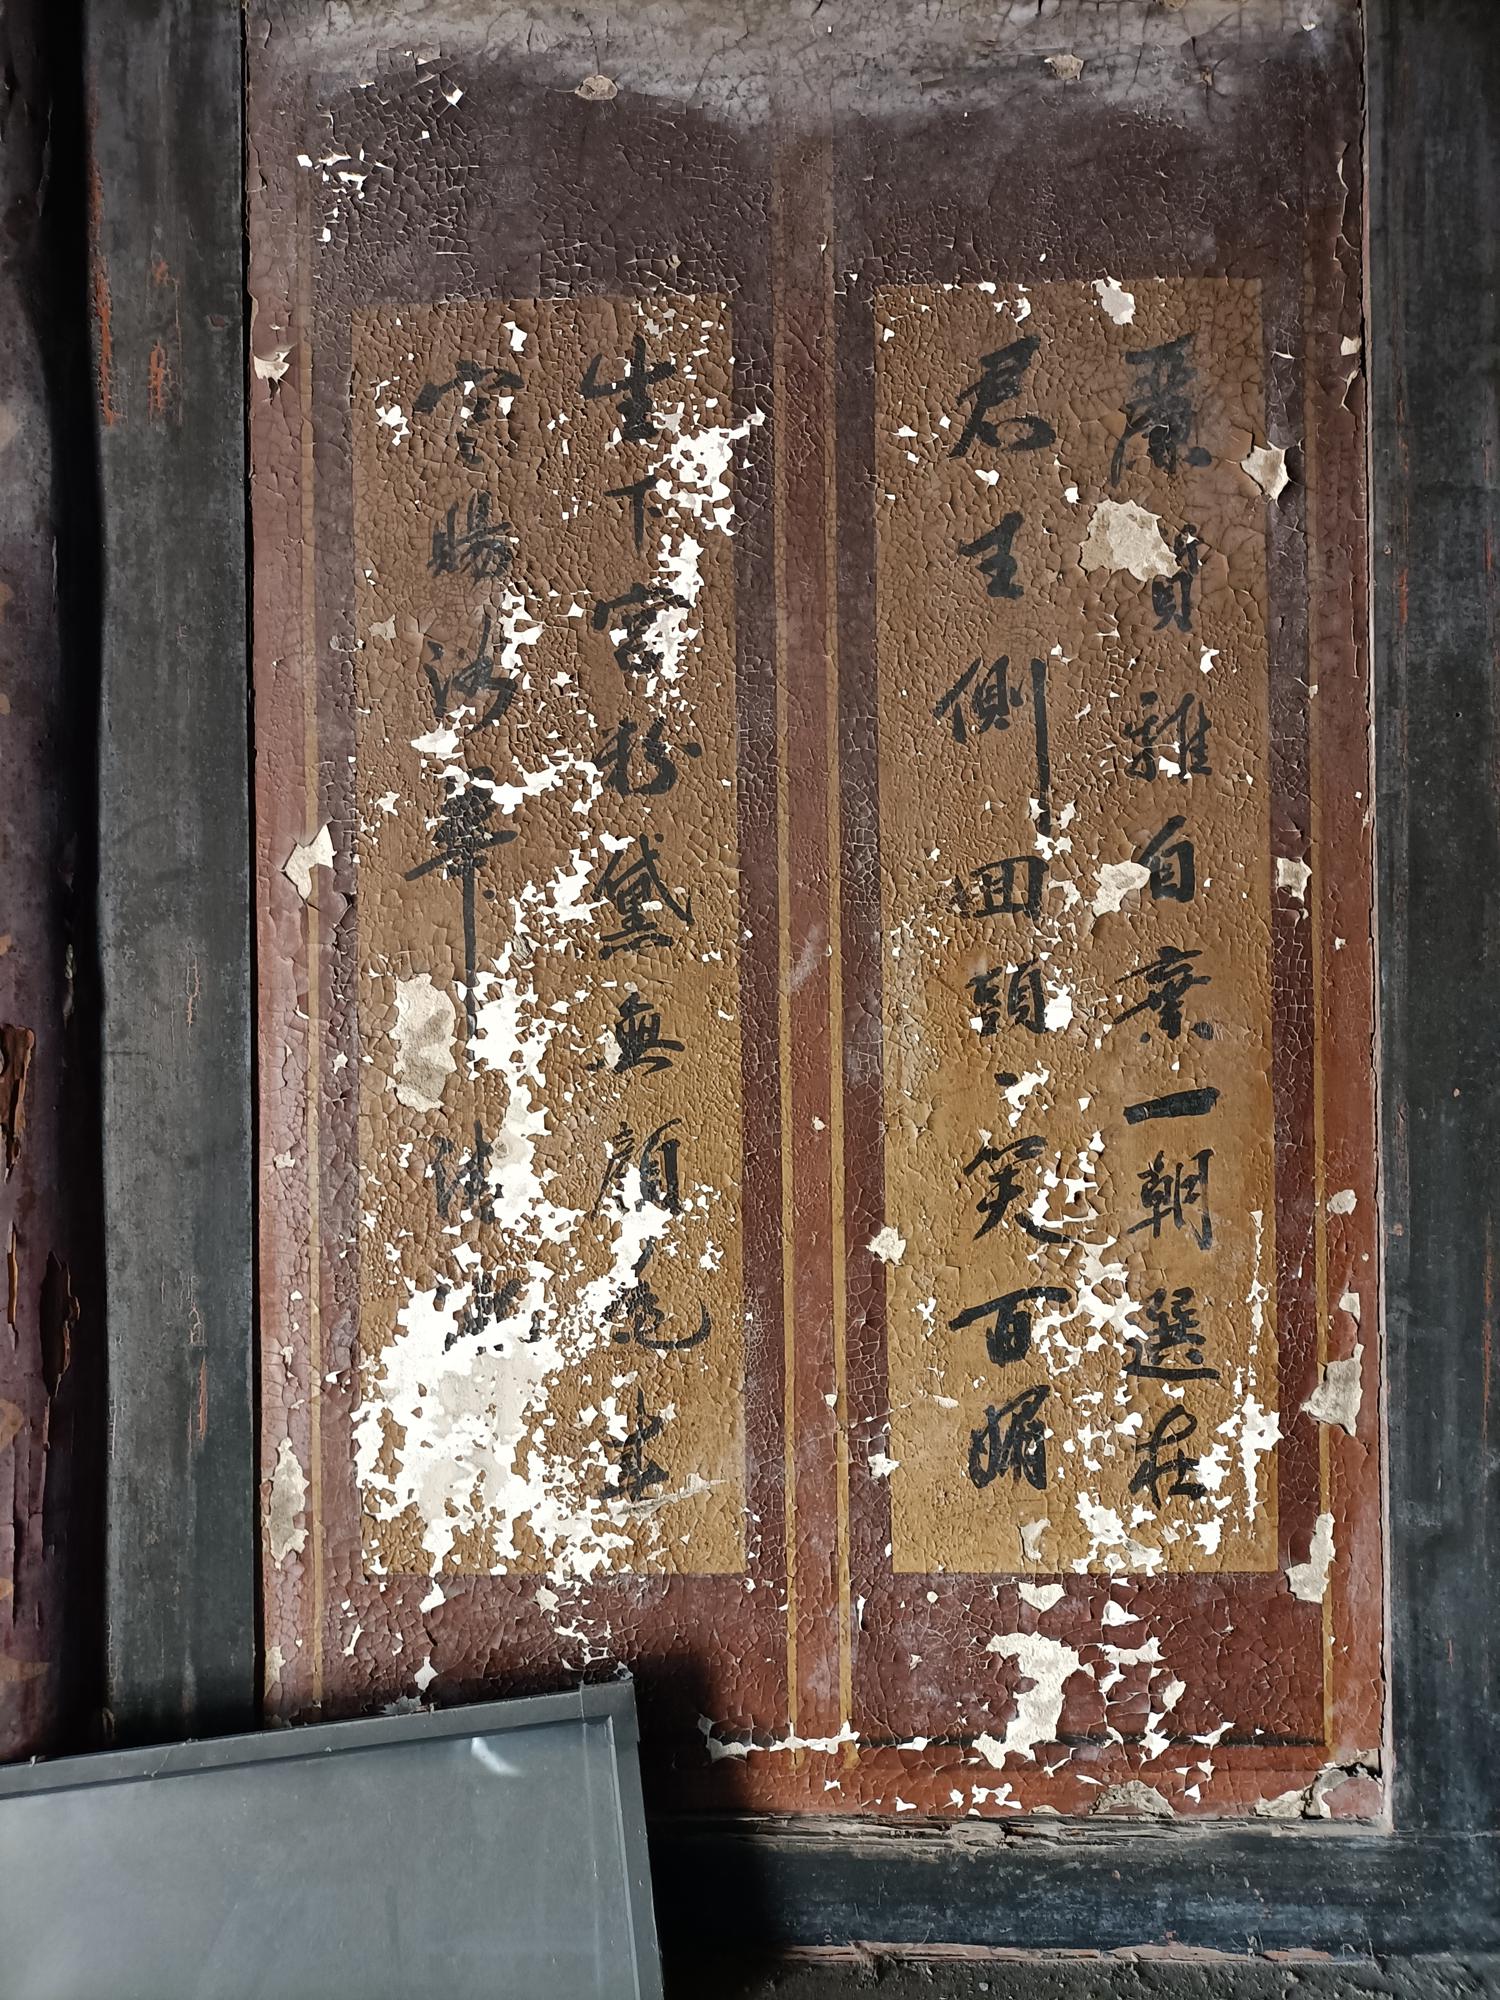 麗質難自棄一朝選在
君王側囬頭一笑百媚
生六宮粉黛無顏色春
寒賜浴華清池